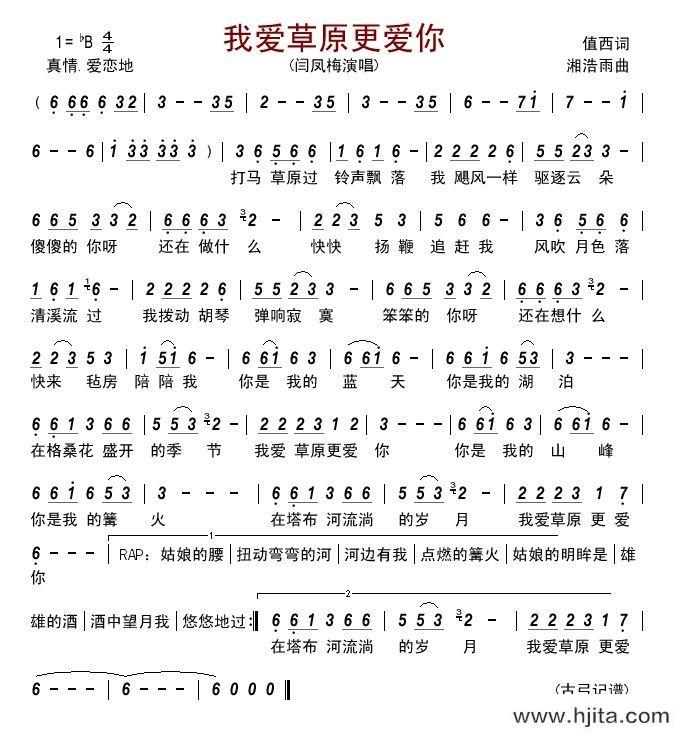 1= ♭B 4/4 我爱草原更爱你 值西词
真情.爱恋地 (闫凤梅演唱) 湘浩雨曲
( 6 66 6 6 32 | 3 - - 35 | 2 - - 35 | 6 - - 71 | 7 - - 1 |
6 - - 6 | 1 33 33 3 ) | 3 6 5 6 6 | 1 6 1 6 - | 2 2 2 2 6 | 5 5 23 3 |
打马 草原过 铃声飘 落 我 飓风一样 驱逐云 朵
6 6 5 3 3 2 | 6 6 6 3 2 - | 2 2 3 5 3 | 2 1 6 1 | 3 6 5 6 |
傻傻的 你呀 还在 做什 么 快快 扬 鞭 追 赶 我 风吹 月色 落
1 6 1 6 - | 2 2 2 2 6 | 5 5 23 3 | 6 6 5 3 3 2 | 6 6 6 3 2 - |
清溪流 过 我拨动 胡琴 弹响寂 寞 笨笨的 你呀 还在想什 么
2 2 3 5 3 | 1 51 6 - | 6 61 6 3 | 5 661 6 - | 6 6 1 6 53 | 3 - - - |
快来 毡房 陪陪 我 你是 我的 蓝 天 你是我的 湖 泊
6 6 1 3 6 6 | 5 53 2 - | 2 2 2 3 1 2 | 2 - - - | 6 61 6 3 | 6 661 6 - |
在格桑花 盛开 的季 节 我爱 草原更爱 你 你是 我的 山 峰
6 6 1 6 5 3 | 3 - - - | 6 6 1 3 6 6 | 5 5 3 2 - | 2 2 2 3 1 7 |
你是我 的篝 火 在塔布 河流淌 的岁 月 我爱草原 更 爱
1
6 - - - | RAP：姑娘的腰 | 扭动弯弯的河 | 河边有我 | 点燃的篝火 | 姑娘的明眸是 | 雄
你
2
雄的酒 | 酒中望月我 | 悠悠地过 :‖ 6 6 1 3 6 6 | 5 5 3 2 - | 2 2 2 3 1 7 |
在塔布 河流淌 的岁 月 我爱草原 更爱
6 - - - | 6 - - - | 6 0 0 0 ‖ (古弓记谱)
www.hjita.com